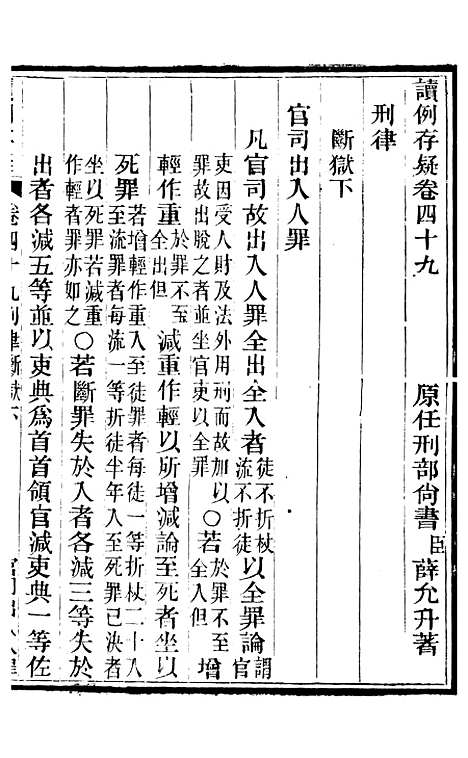 讀例存疑卷四十九
原任刑部尚書臣薛允升著
刑律
斷獄下
官司出入人罪
凡官司故出入人罪全出全入者徒不折杖流不折徒以全罪論謂官
吏因受人財及法外用刑而故加以罪故出脫之者並坐官吏以全罪○若於罪不至全入但增
輕作重於罪不至全出但減重作輕以所增減論至死者坐以
死罪若增輕作重入至徒罪者每徒一等折杖二十入至流罪者每流一等折徒半年入至死罪已決者
坐以死罪若減重作輕者罪亦如之○若斷罪失於入者各減三等失於
出者各減五等並以吏典為首首領官減吏典一等佐
卷四十九刑律斷獄下
官司出入人罪